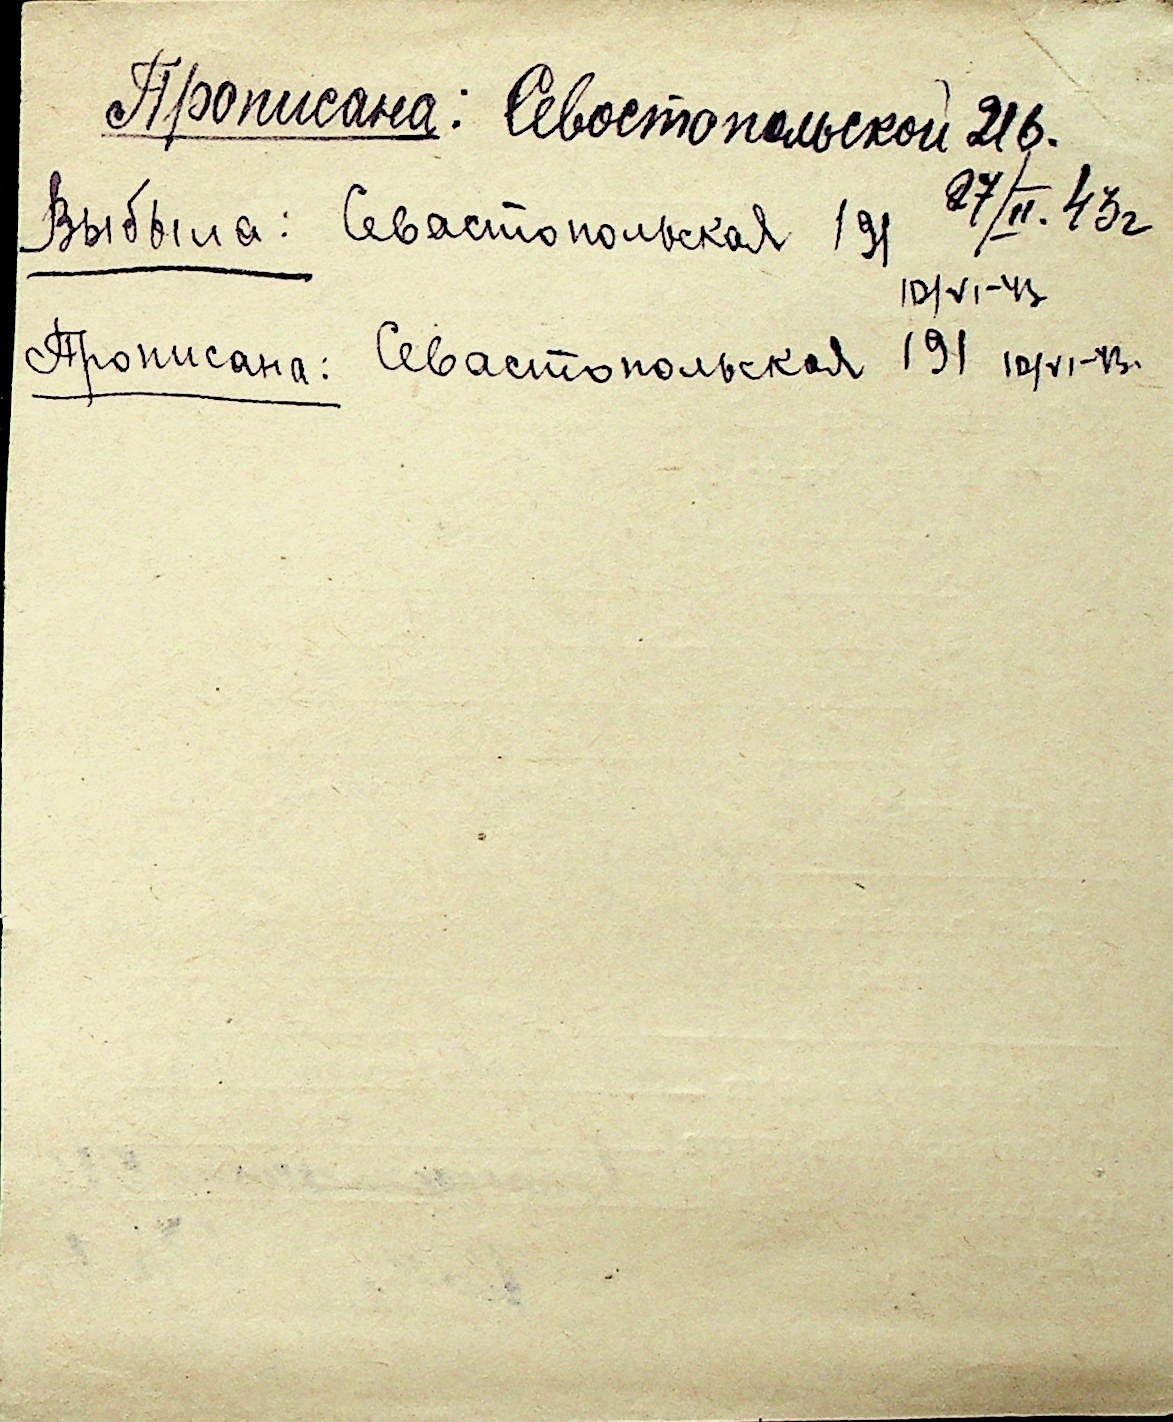 Прописана: Севостопольской 21б.
27/II. 43г
Выбыла: Севастопольская 191
10/VI-43
Прописана: Севастопольская 191 10/VI-43.